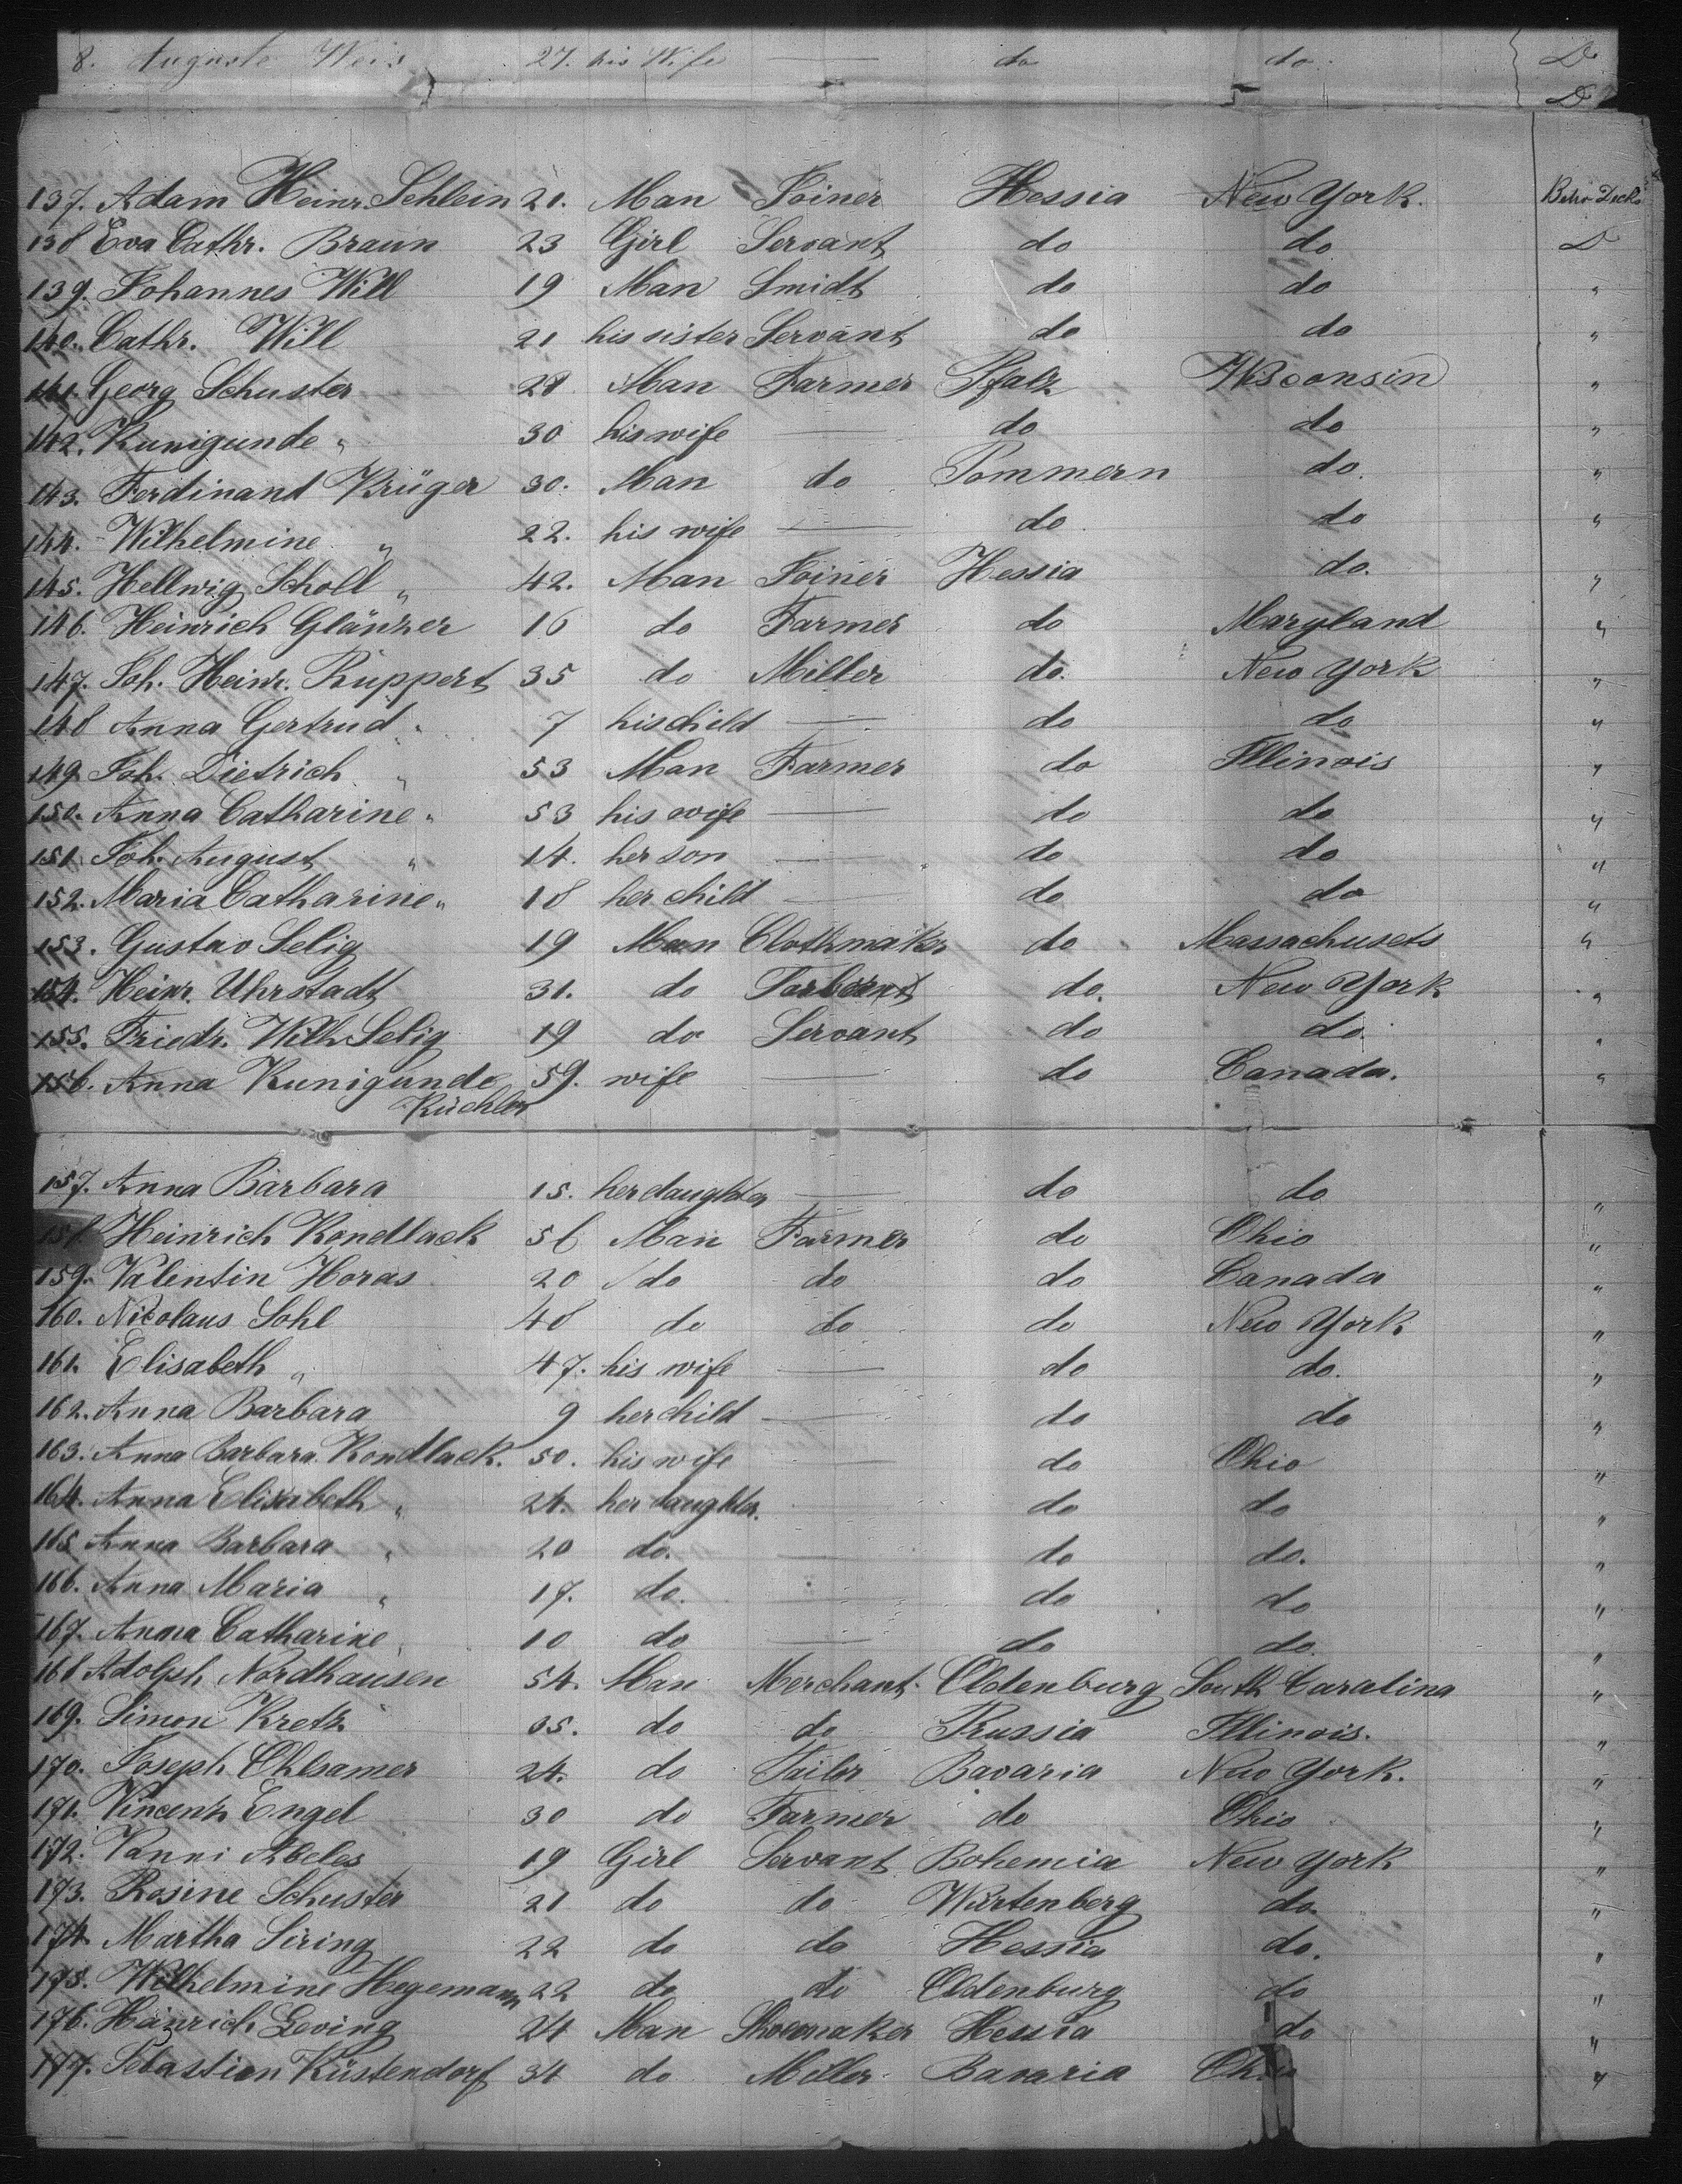 8. Auguste Weis 27. his Wife — do do. D
D
137. Adam Heinr. Sehlein 21. Man Joiner Hessia New York. Betw Deck
138 Eva Cathr. Braun 23 Girl Servant do do D
139. Johannes Will 19 Man Smidt do do "
140. Cathr. Will 21 his sister Servant do do "
141. Georg Schuster 28 Man Farmer Pfalz Wisconsin "
142. Kunigunde " 30 his wife — do do "
143. Ferdinant Krüger 30. Man do Pommern do. "
144. Wilhelmine " 22. his wife — do do "
145. Hellwig Scholl " 42. Man Joiner Hessia do. "
146. Heinrich Glänzer 16 do Farmer do Maryland "
147. Joh. Heinr. Ruppert 35 do Miller do. New York "
148 Anna Gertrud " 7 his child — do do "
149. Joh. Dietrich " 53 Man Farmer do Illinois "
150. Anna Catharine " 53 his wife — do do "
151 Joh. August " 14. her son — do do "
152. Maria Catharine " 18 her child — do do "
153. Gustav Selig 19 Man Clothmaker do Massachusets "
154. Heinr. Uhrstadt 31. do do. New York "
155. Friedr. Wilh Selig 19 do Servant do do. "
156. Anna Kunigunde 59. wife — do Canada. "
Küchler
157. Anna Barbara 15. her daughter — do do "
158. Heinrich Kondlack 56 Man Farmer do Ohio "
159. Valentin Horas 20 do do do Canada "
160. Nicolaus Sohl 48 do do do New York "
161. Elisabeth " 47. his wife — do do. "
162. Anna Barbara 9 her child — do do "
163. Anna Barbara Kondlack. 50. his wife — do Ohio "
164. Anna Elisabeth " 24. her daughter. do do "
165 Anna Barbara " 20 do. — do do. "
166. Anna Maria " 17. do. — do do "
167. Anna Catharine 10 do — do do. "
168 Adolph Nordhausen 54. Man Merchant. Oldenburg South Caralina "
169. Simon Kretz 35. do do Prussia Illinois. "
170. Joseph Ohlsamer 24. do Tailor Bavaria New York. "
171. Vincenz Engel 30 do Farmer do Ohio "
172. Vanni Abeles 19 Girl Servant Bohemia New York "
173. Rosine Schuster 21 do do Würtenberg do. "
174. Martha Siring 22 do do Hessia do. "
175. Wilhelmine Hegemann 22 do do Oldenburg do "
176. Heinrich Geving 24 Man Shoemaker Hessia do "
177. Sebastian Küstendorf 34 do Miller Bavaria Ohio "